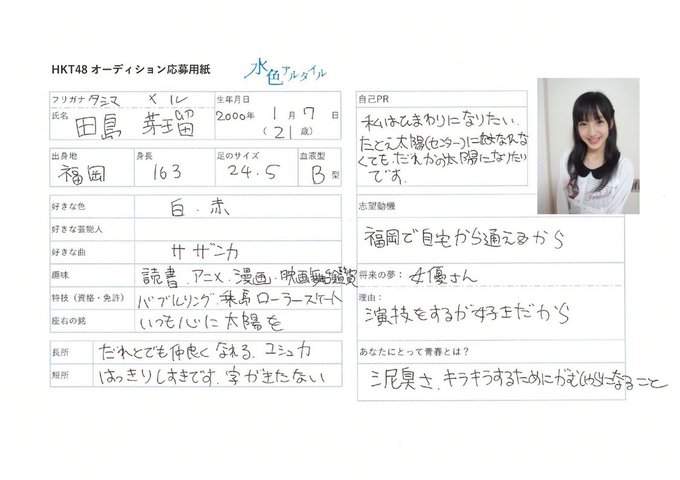 HKT48 オーディション応募用紙
水色アルタイル
フリガナ タシマ メル
氏名 田島 芽瑠
生年月日
2000年 1月 7日
(21歳)
出身地 福岡
身長 163
足のサイズ 24.5
血液型 B型
好きな色 白・赤
好きな芸能人
好きな曲 サザンカ
趣味 読書・アニメ・漫画・映画舞台鑑賞
特技(資格・免許) バブルリング、乗馬 ローラースケート
座右の銘 いつも心に太陽を
長所 だれとでも仲良くなれる、ユシュカ
短所 はっきりしすぎです、字がきたない
自己PR
私はひまわりになりたい、
たとえ太陽(センター)になれな
くても、だれかの太陽になりたい
です。
志望動機
福岡で自宅から通えるから
将来の夢: 女優さん
理由:
演技をするが好きだから
あなたにとって青春とは?
泥臭さ、キラキラするためにがむしゃらになること